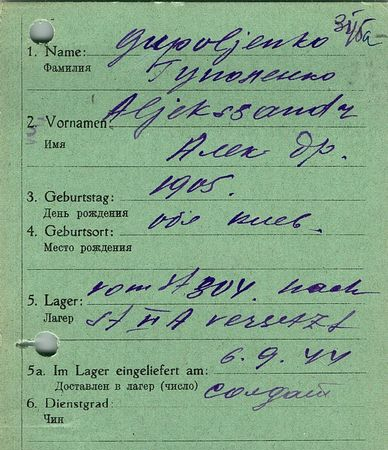 1. Name: Gupoljenko
Фамилия Гупоненко
2. Vornamen: Aljekssandr
Имя Алек др.
3. Geburtstag: 1905.
День рождения
4. Geburtsort: обл киев.
Место рождения
5. Lager: vom St 304. nach
Лагер St IV A versetzt
5a. Im Lager eingeliefert am: 6. 9. 44
Доставлен в лагер (число)
6. Dienstgrad: солдат
Чин